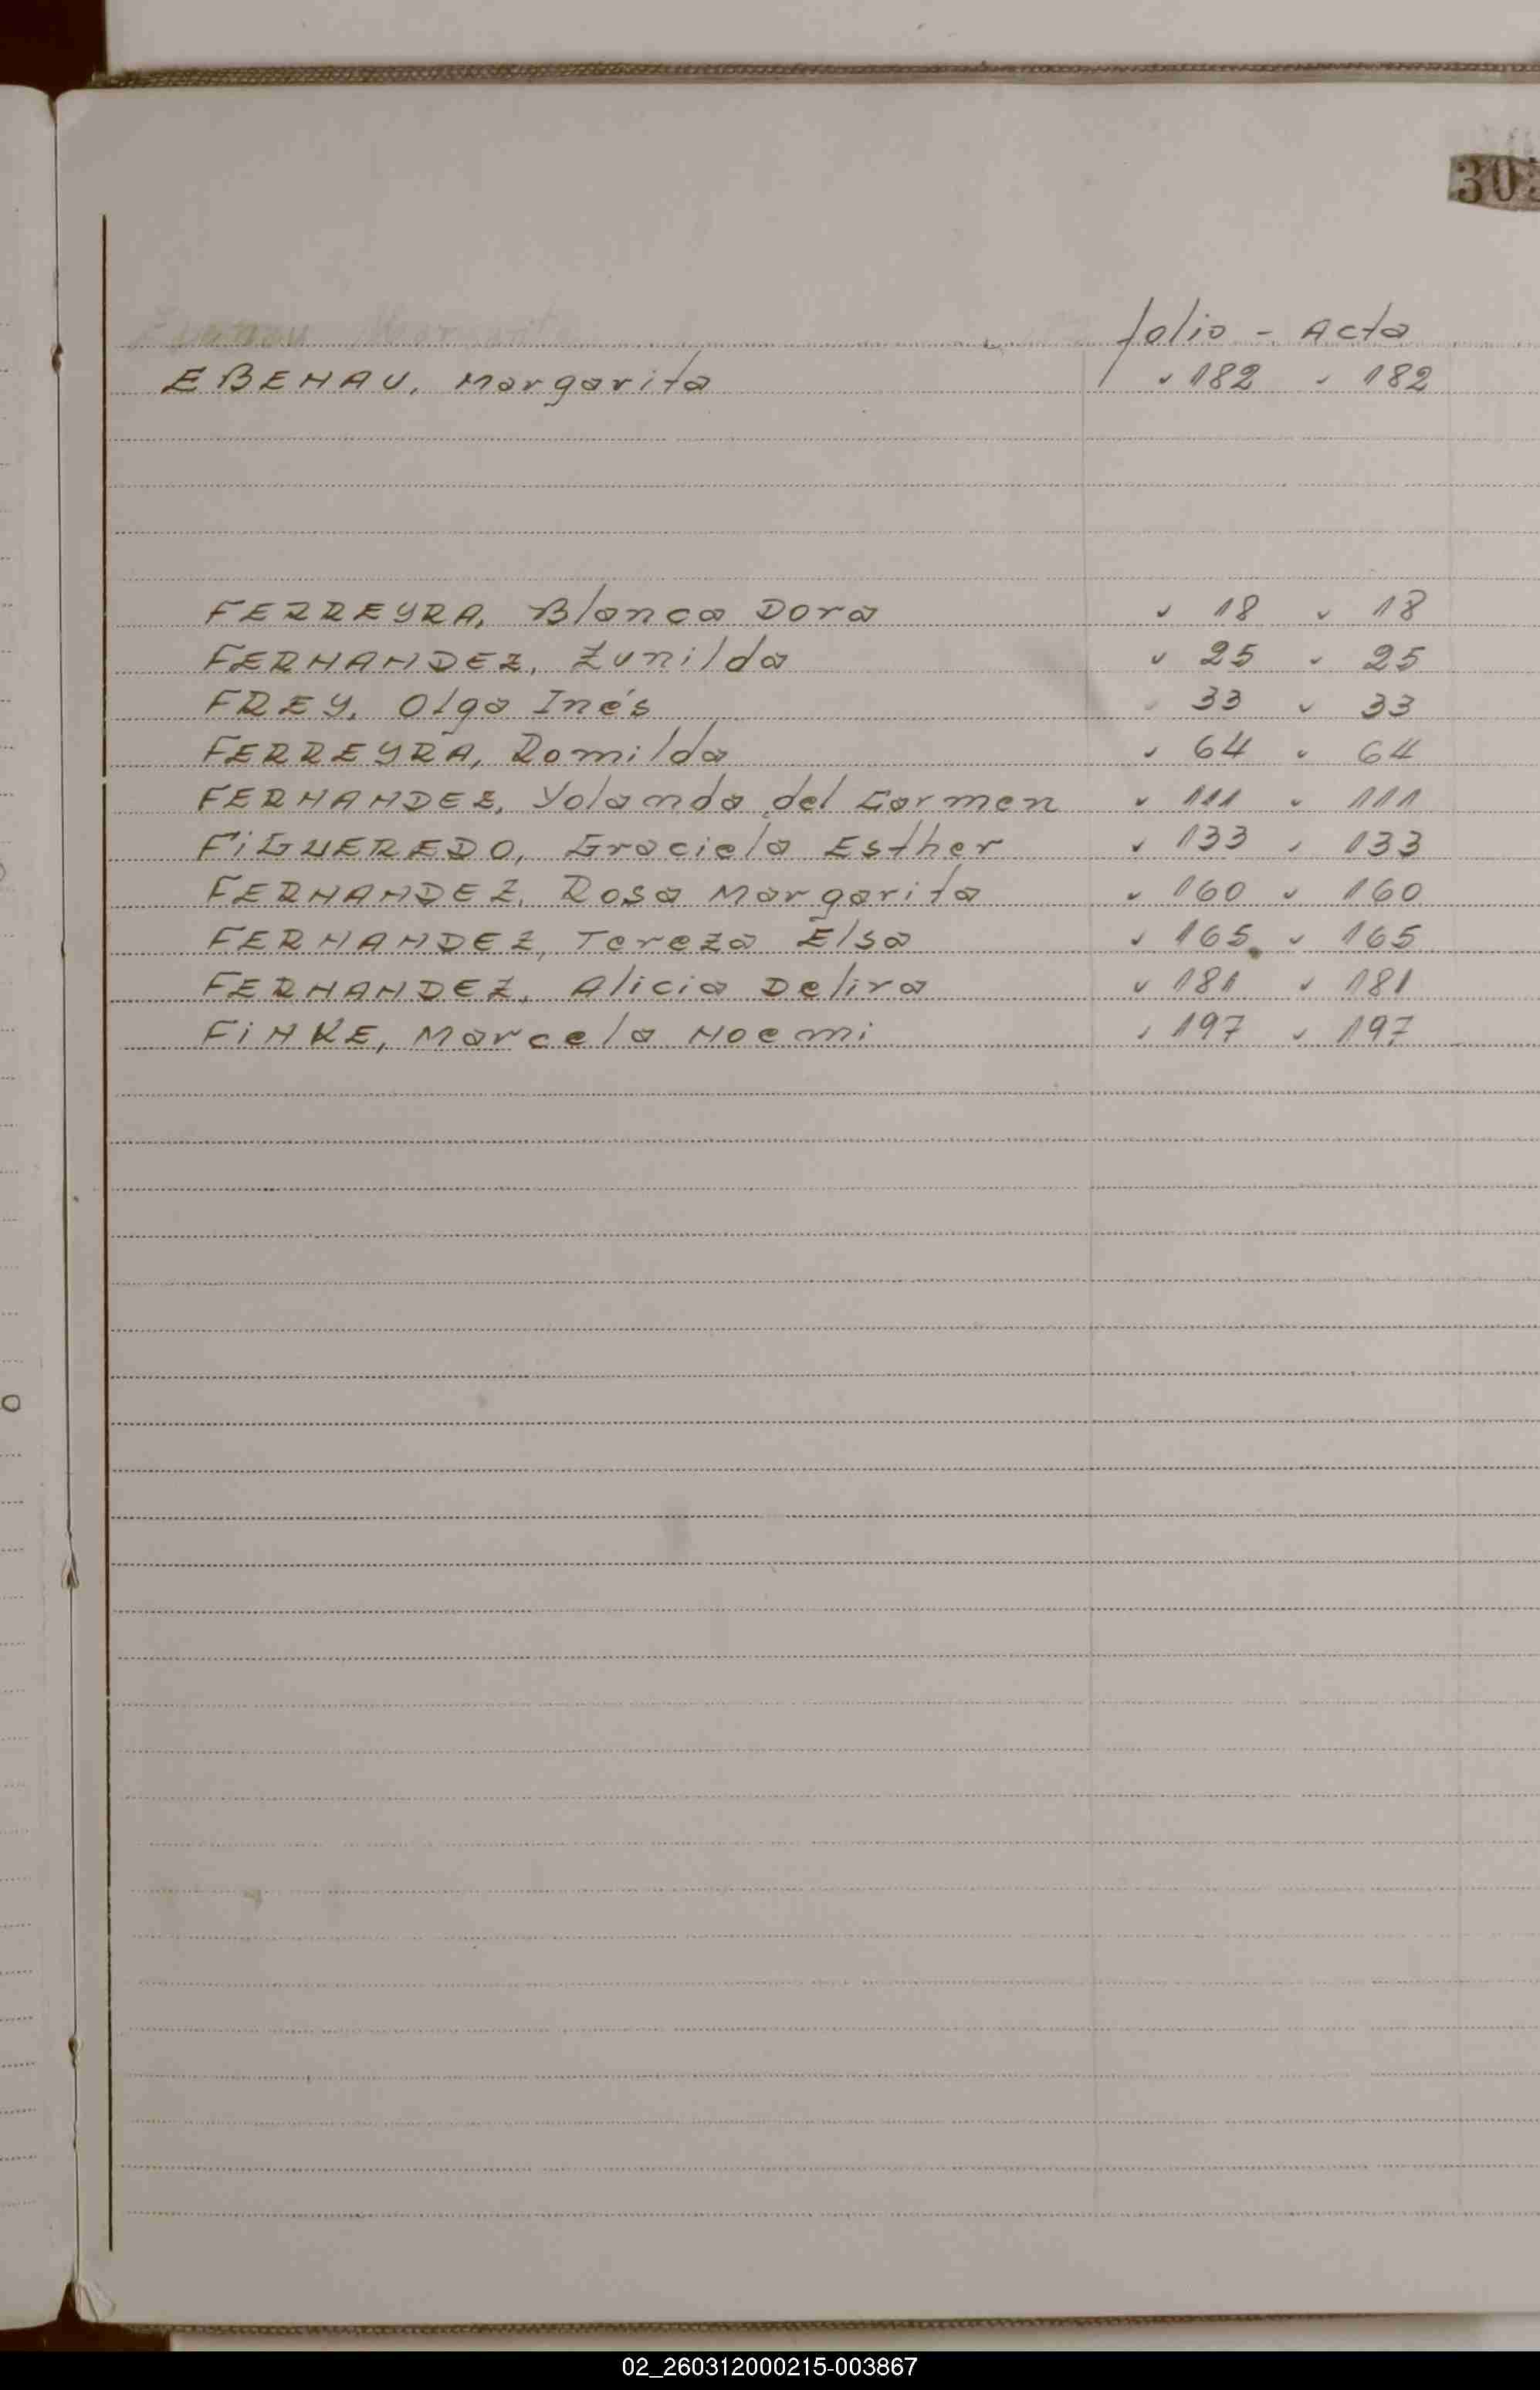 folio - Acta
EBENAU, Margarita ✓ 182 ✓ 182
FERREYRA, Blanca Dora ✓ 18 ✓ 18
FERNANDEZ, Zunilda ✓ 25 ✓ 25
FREY, Olga Inés ✓ 33 ✓ 33
FERREYRA, Romilda ✓ 64 ✓ 64
FERNANDEZ, Yolanda del Carmen ✓ 111 ✓ 111
FiGUEREDO, Graciela Esther ✓ 133 ✓ 133
FERNANDEZ, Rosa Margarita ✓ 160 ✓ 160
FERNANDEZ, Tereza Elsa ✓ 165 ✓ 165
FERNANDEZ, Alicia Delira ✓ 181 ✓ 181
FiNKE, Marcela Noemi ✓ 197 ✓ 197
02_260312000215-003867